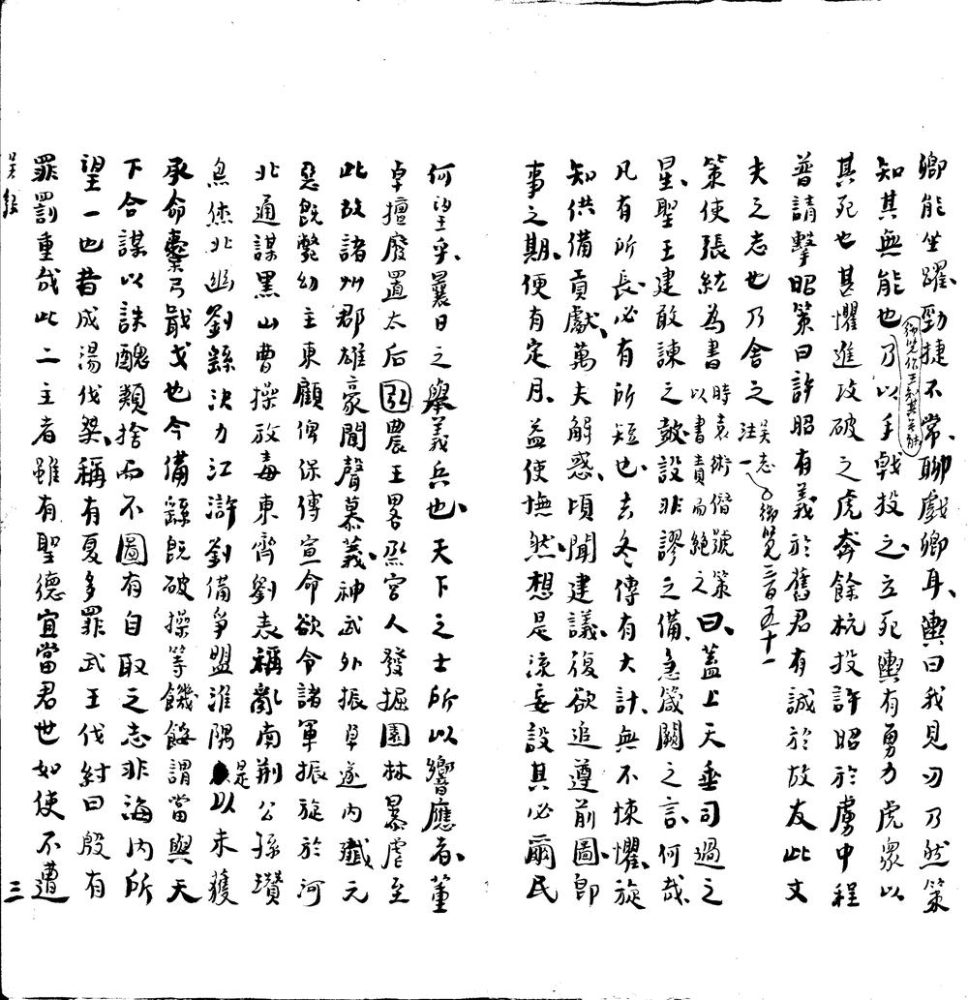 卿能坐躍勁捷不常聊戲卿耳輿曰我見刃乃然策
知其無能也乃以手戟投之立死輿有勇力虎眾以
其死也甚懼進攻破之虎奔餘杭投許昭於虜中程
普請擊昭策曰許昭有義於舊君有誠於故友此丈
夫之志也乃舍之
吳志一注
御覽三百五十一
策使張紘為書
時袁術僭號策
以書責而絕之
曰蓋上天垂司過之
星聖王建敢諫之鼓設非謬之備急箴闕之言何哉
凡有所長必有所短也去冬傳有大計無不悚懼旋
知供備貢獻萬夫解惑頃聞建議復欲追遵前圖即
事之期便有定月益使憮然想是流妄設其必爾民
何望乎曩日之舉義兵也天下之士所以響應者董
卓擅廢置太后弘農王畧烝宮人發掘園林暴虐至
此故諸州郡雄豪聞聲慕義神武外振卓遂內殲元
惡既斃幼主東顧俾保傅宣命欲令諸軍振旋於河
北通謀黑山曹操放毒東齊劉表稱亂南荆公孫瓚
炰烋北幽劉繇決力江滸劉備爭盟淮隅是以未獲
承命櫜弓戢戈也今備繇既破操等饑餒謂當與天
下合謀以誅醜類捨而不圖有自取之志非海內所
望一也昔成湯伐桀稱有夏多罪武王伐紂曰殷有
罪罰重哉此二主者雖有聖德宜當君世如使不遭
三